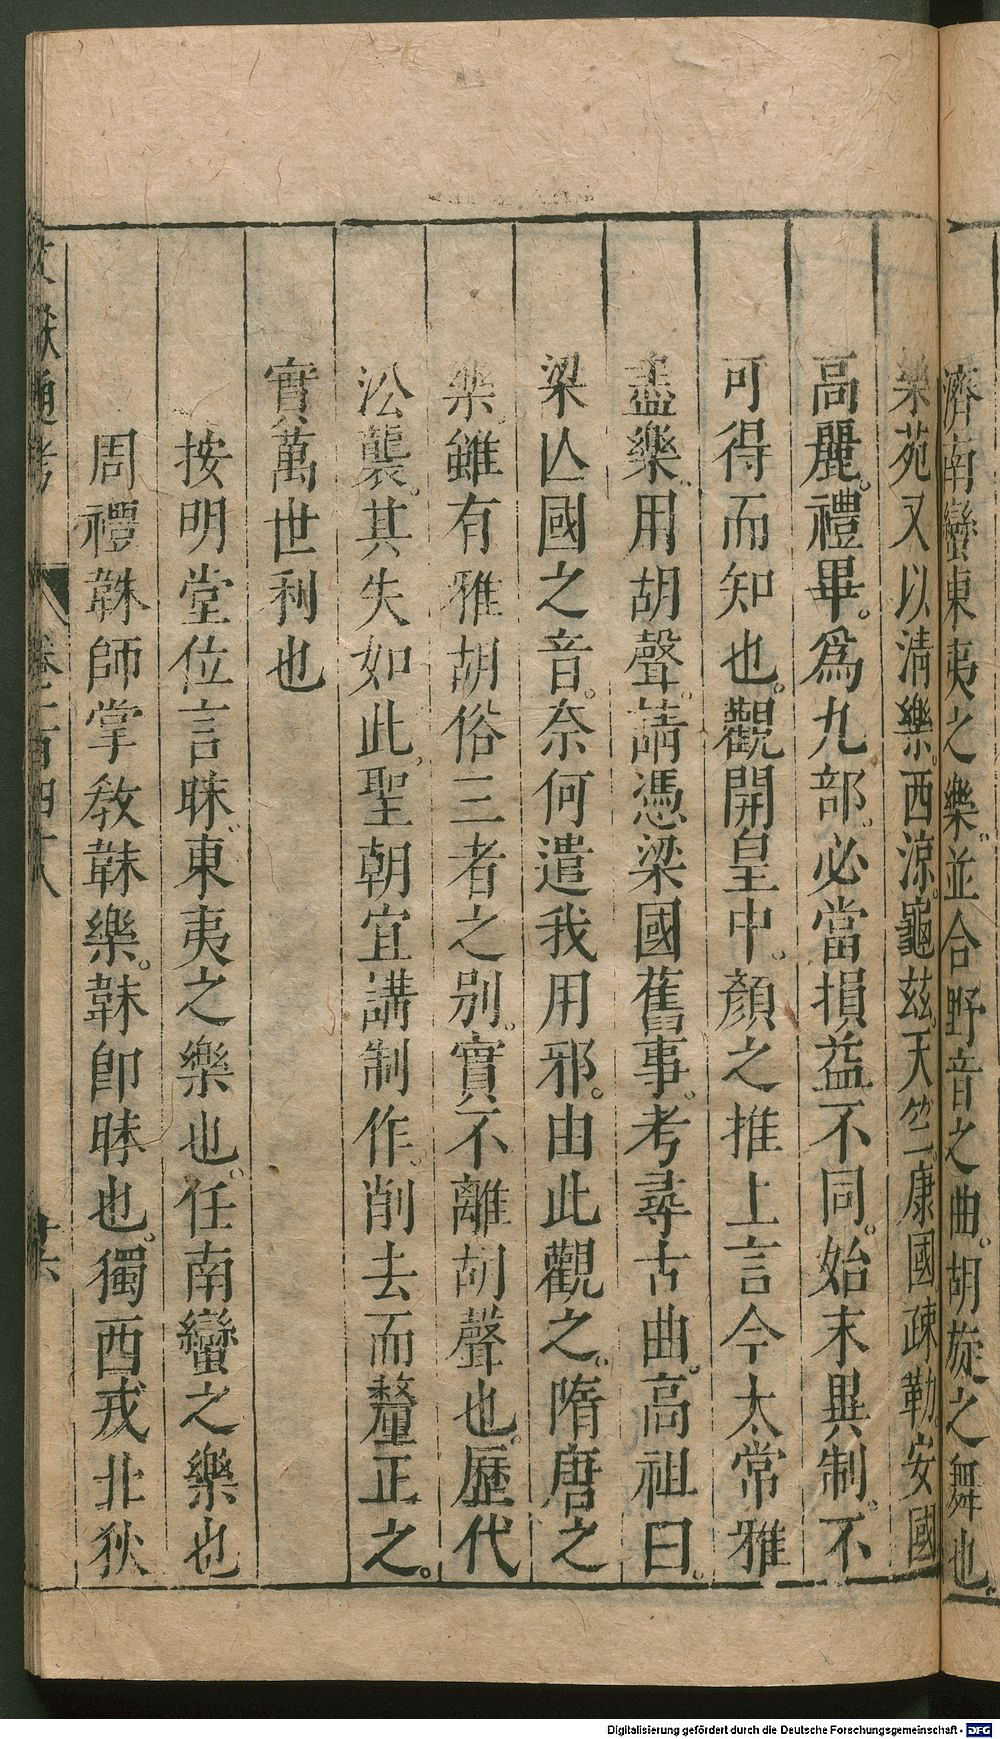 濟南蠻東夷之樂並合野音之曲。胡旋之舞也。
樂苑又以清樂。西涼。龜茲。天竺。康國。疎勒。安國
高麗。禮畢。爲九部。必當損益不同。始末異制。不
可得而知也。觀開皇中。顏之推上言今太常雅
盡樂。用胡聲。請憑梁國舊事。考尋古曲。高祖曰。
梁亾國之音。奈何遣我用邪。由此觀之。隋唐之
樂。雖有雅胡俗三者之別。實不離胡聲也。歷代
㳂襲。其失如此。聖朝宜講制作。削去而釐正之。
實萬世利也
按明堂位言昧。東夷之樂也。任南蠻之樂也
周禮韎師掌敎韎樂。韎卽昧也。獨西戎北狄
文獻通考 卷一百四十八 廿六
Digitalisierung gefördert durch die Deutsche Forschungsgemeinschaft - DFG